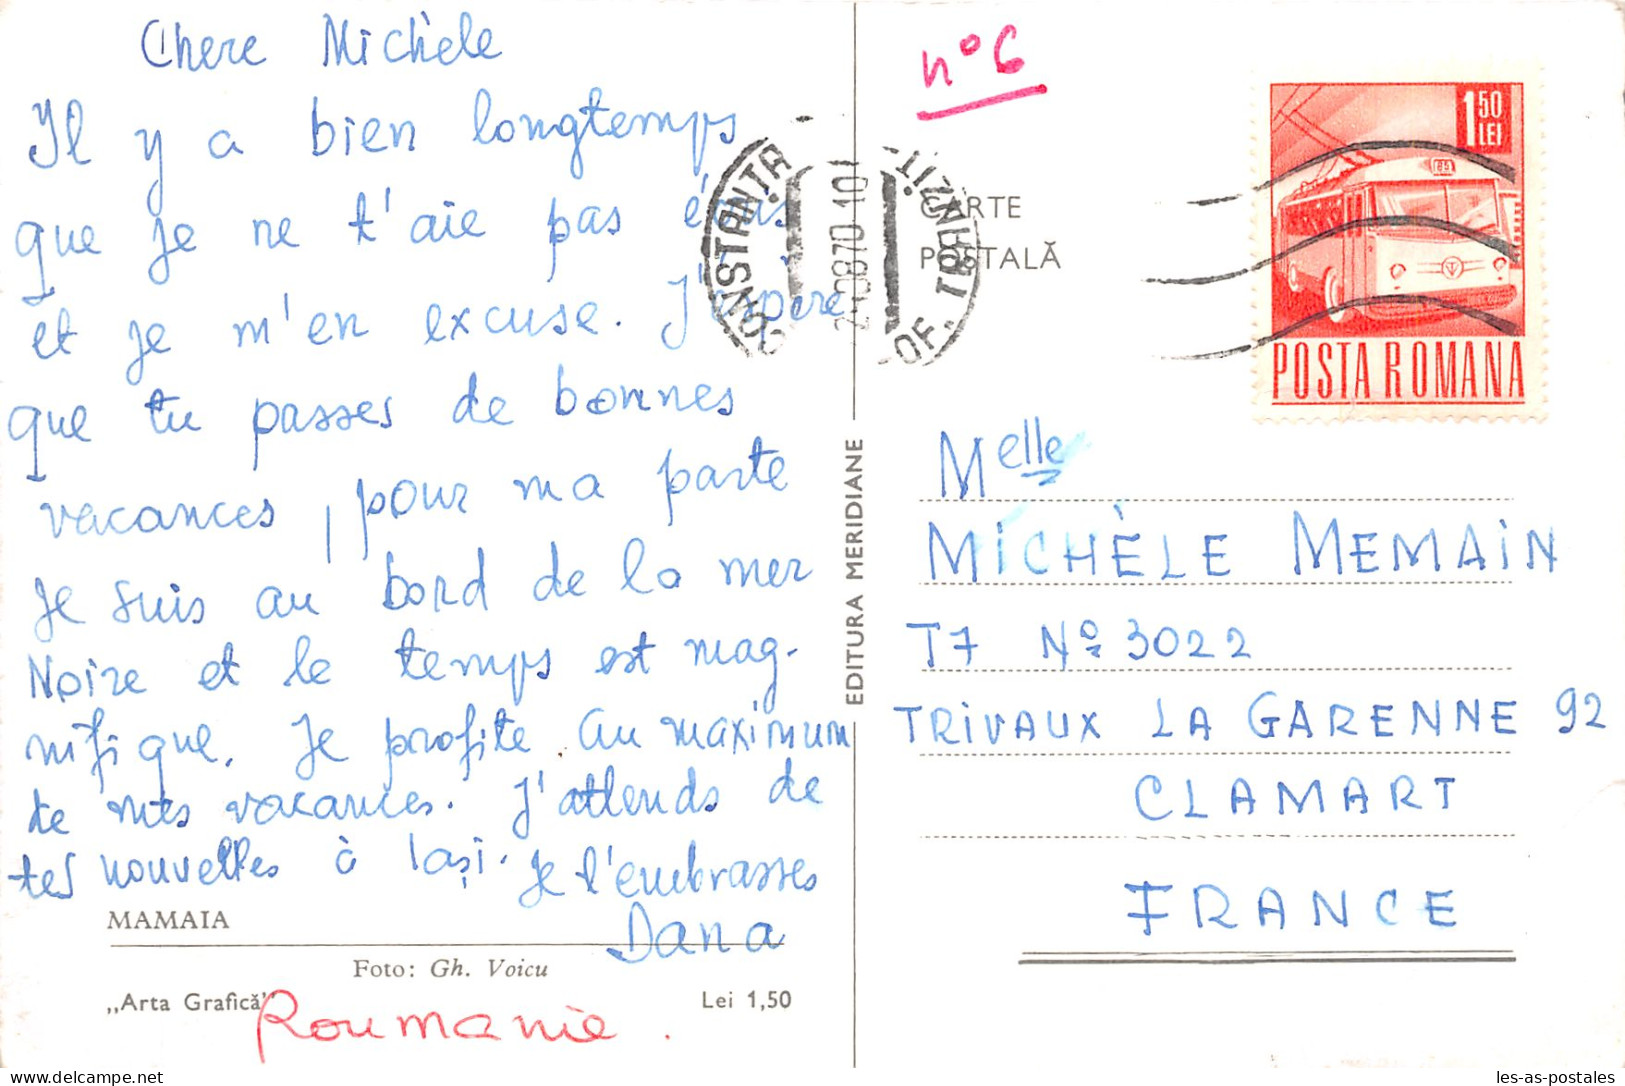 Chere Michèle
Il y a bien longtemps
que je ne t'aie pas écris
et je m'en excuse. J'espère
que tu passes de bonnes
vacances, pour ma parte
je suis au bord de la mer
Noire et le temps est mag-
nifique. Je profite au maximum
de mes vacances. J'attends de
tes nouvelles à Iași. Je t'embrasses
Dana
MAMAIA
Foto: Gh. Voicu
„Arta Grafică"
Lei 1,50
Roumanie.
EDITURA MERIDIANE
n° 6
CONSTANȚA
24.08.70.10
OF. TRANZIT
CARTE
POȘTALĂ
1 50
LEI
POSTA ROMANA
Melle
MICHÈLE MEMAIN
T7 Nº 3022
TRIVAUX LA GARENNE 92
CLAMART
FRANCE
les-as-postales